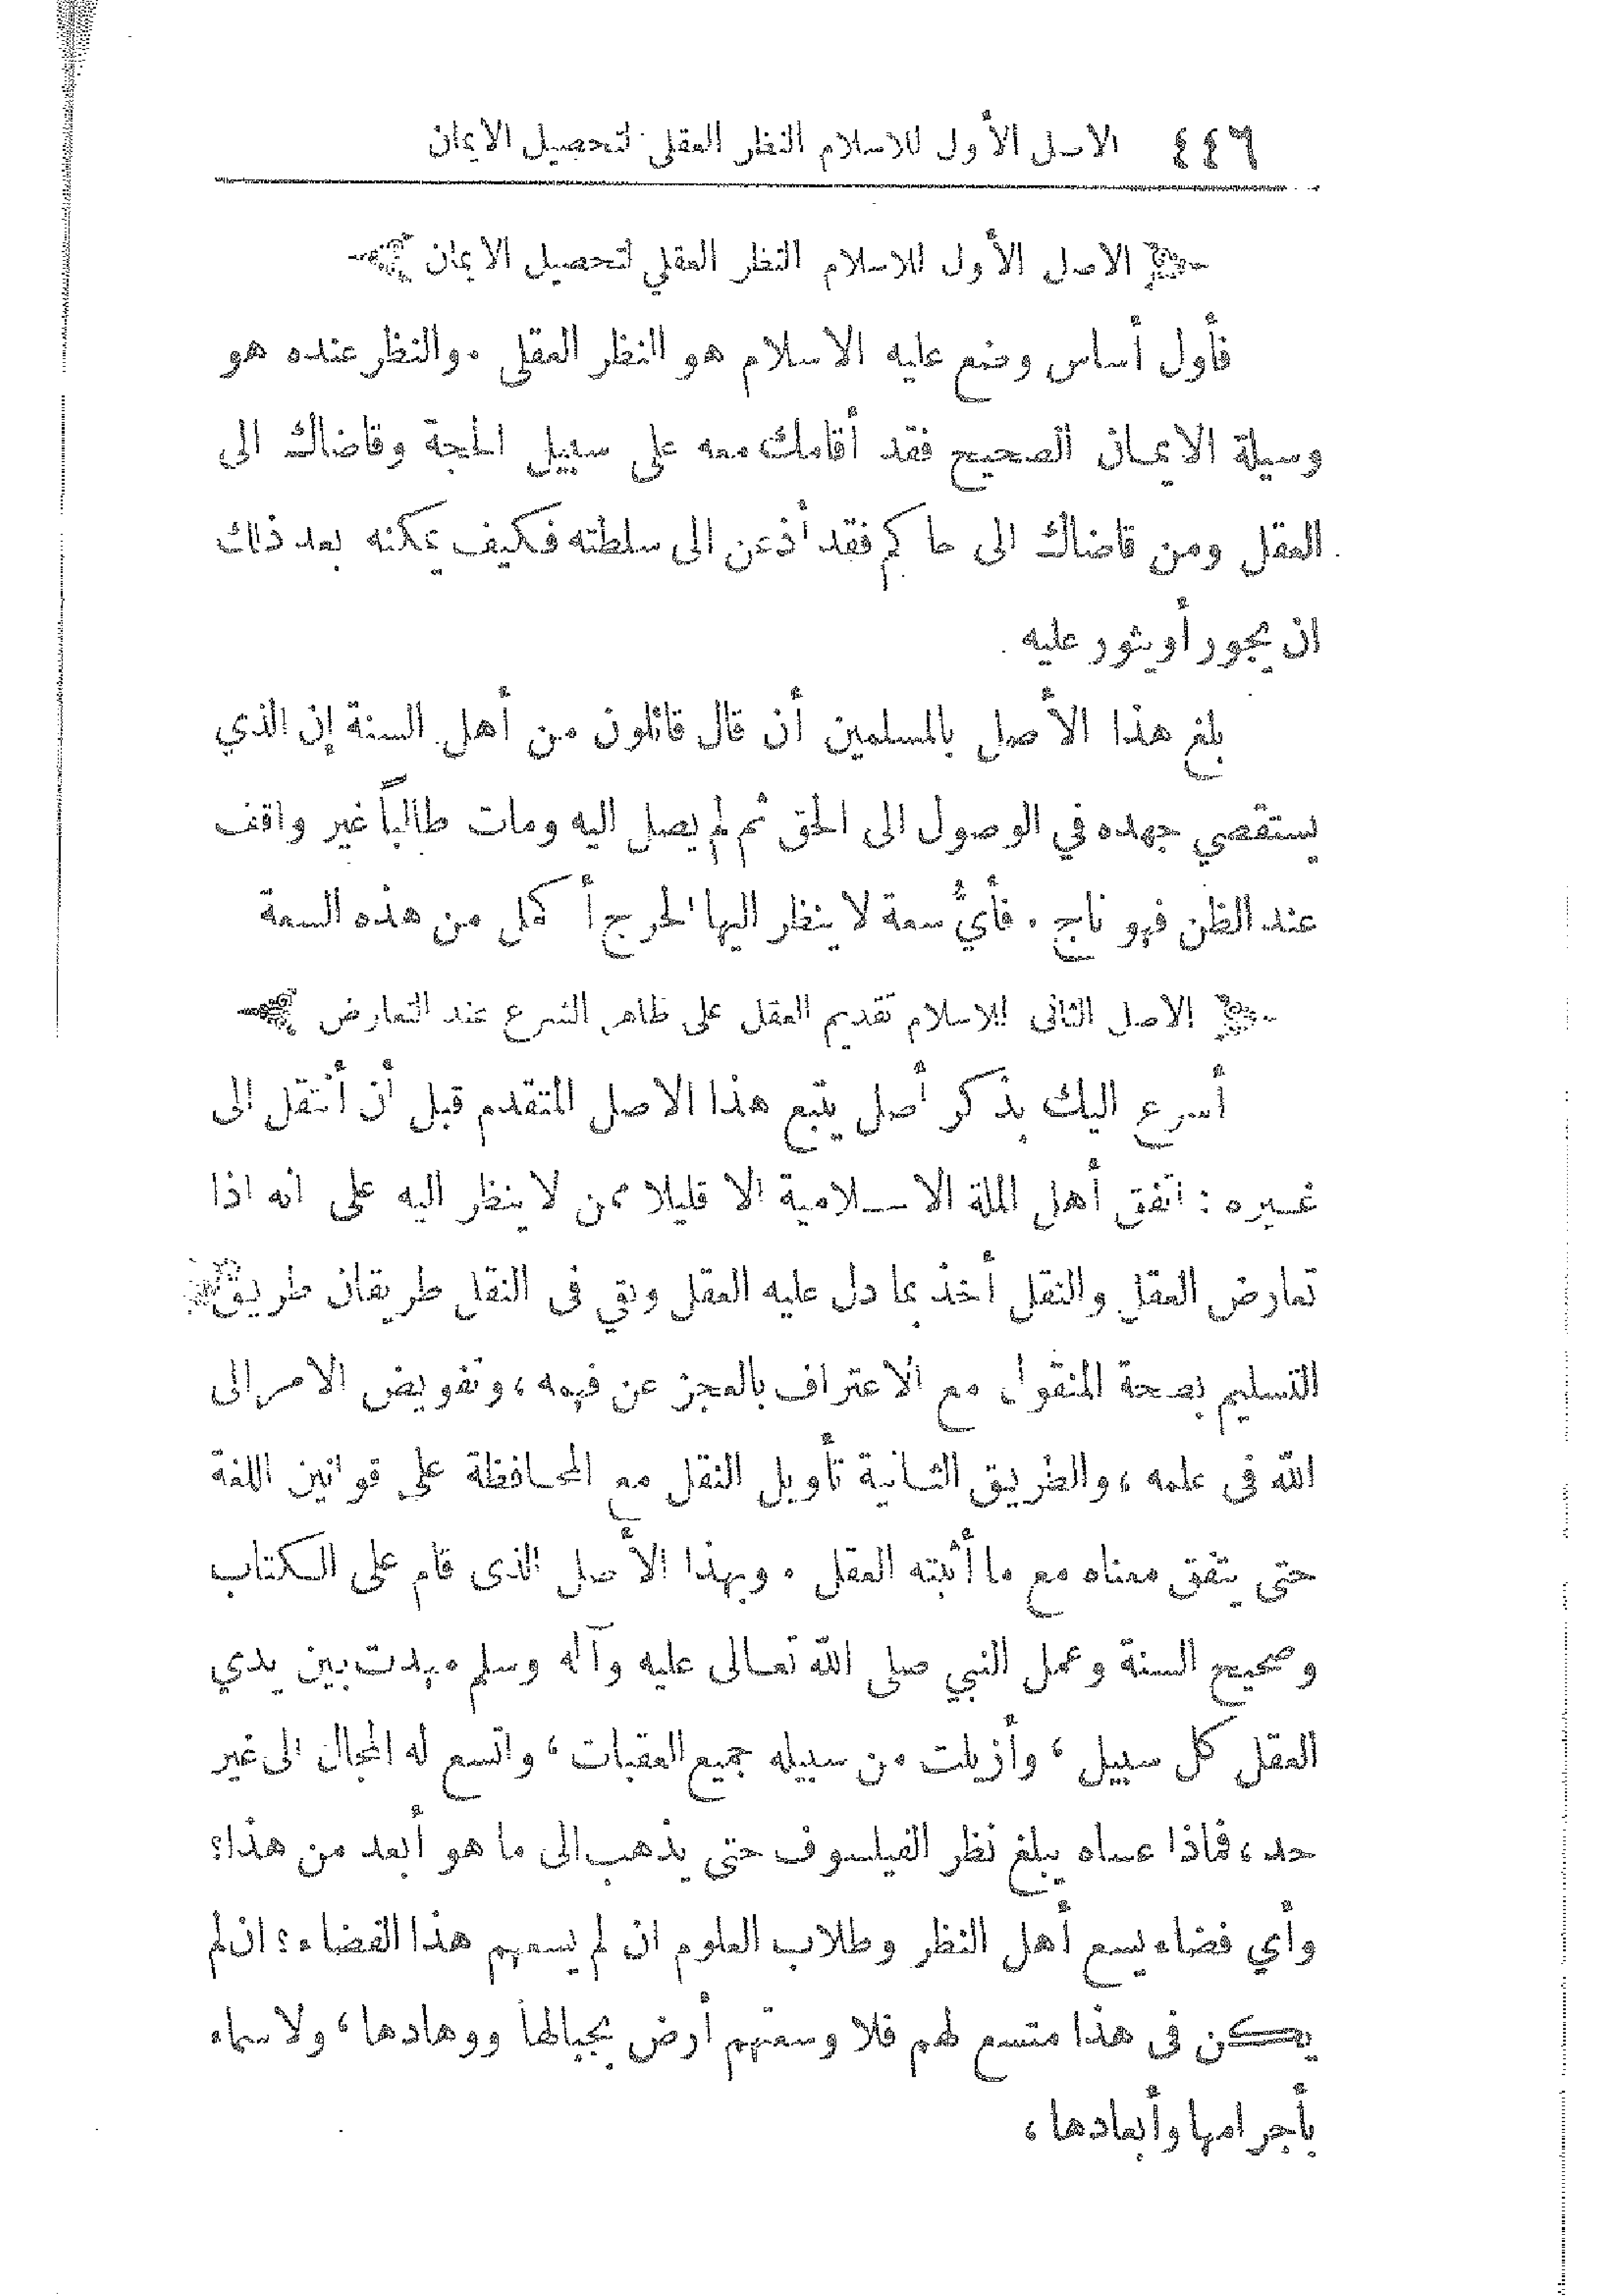 ٤٤٦ الاصل الأول للاسلام النظر العقلى لتحصيل الايمان
الاصل الأول للاسلام النظر العقلي لتحصيل الايمان
فأول أساس وضع عليه الاسلام هو النظر العقلى . والنظر عنده هو
وسيلة الايمان الصحيح فقد أقامك معه على سبيل الحجة وقاضاك الى
العقل ومن قاضاك الى حاكم فقد أذعن الى سلطته فكيف يمكنه بعد ذلك
ان يجور أو يثور عليه
بلغ هذا الأصل بالمسلمين أن قال قائلون من أهل السنة إن الذي
يستقصي جهده في الوصول الى الحق ثم لم يصل اليه ومات طالباً غير واقف
عند الظن فهو ناج . فأيُّ سعة لا ينظر اليها الحرج أكمل من هذه السعة
الاصل الثانى للاسلام تقديم العقل على ظاهر الشرع عند التعارض
أسرع اليك بذكر أصل يتبع هذا الاصل المتقدم قبل أن أنتقل الى
غيره : اتفق أهل الملة الاسلامية الا قليلا ممن لا ينظر اليه على انه اذا
تعارض العقل والنقل أخذ بما دل عليه العقل وبقي فى النقل طريقان طريق
التسليم بصحة المنقول مع الاعتراف بالعجز عن فهمه ، وتفويض الامر الى
الله فى علمه ، والطريق الثانية تأويل النقل مع المحافظة على قوانين اللغة
حتى يتفق معناه مع ما أثبته العقل . وبهذا الأصل الذى قام على الكتاب
وصحيح السنة وعمل النبي صلى الله تعالى عليه وآله وسلم مهدت بين يدي
العقل كل سبيل ، وأزيلت من سبيله جميع العقبات ، واتسع له المجال الى غير
حد ، فماذا عساه يبلغ نظر الفيلسوف حتى يذهب الى ما هو أبعد من هذا؟
وأي فضاء يسع أهل النظر وطلاب العلوم ان لم يسعهم هذا الفضاء ؟ ان لم
يكن فى هذا متسع لهم فلا وسعتهم أرض بجبالها ووهادها ، ولا سماء
بأجرامها وأبعادها ،